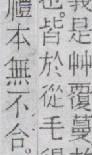 義是艸覆蔓
也皆於從毛
禮本無不合。